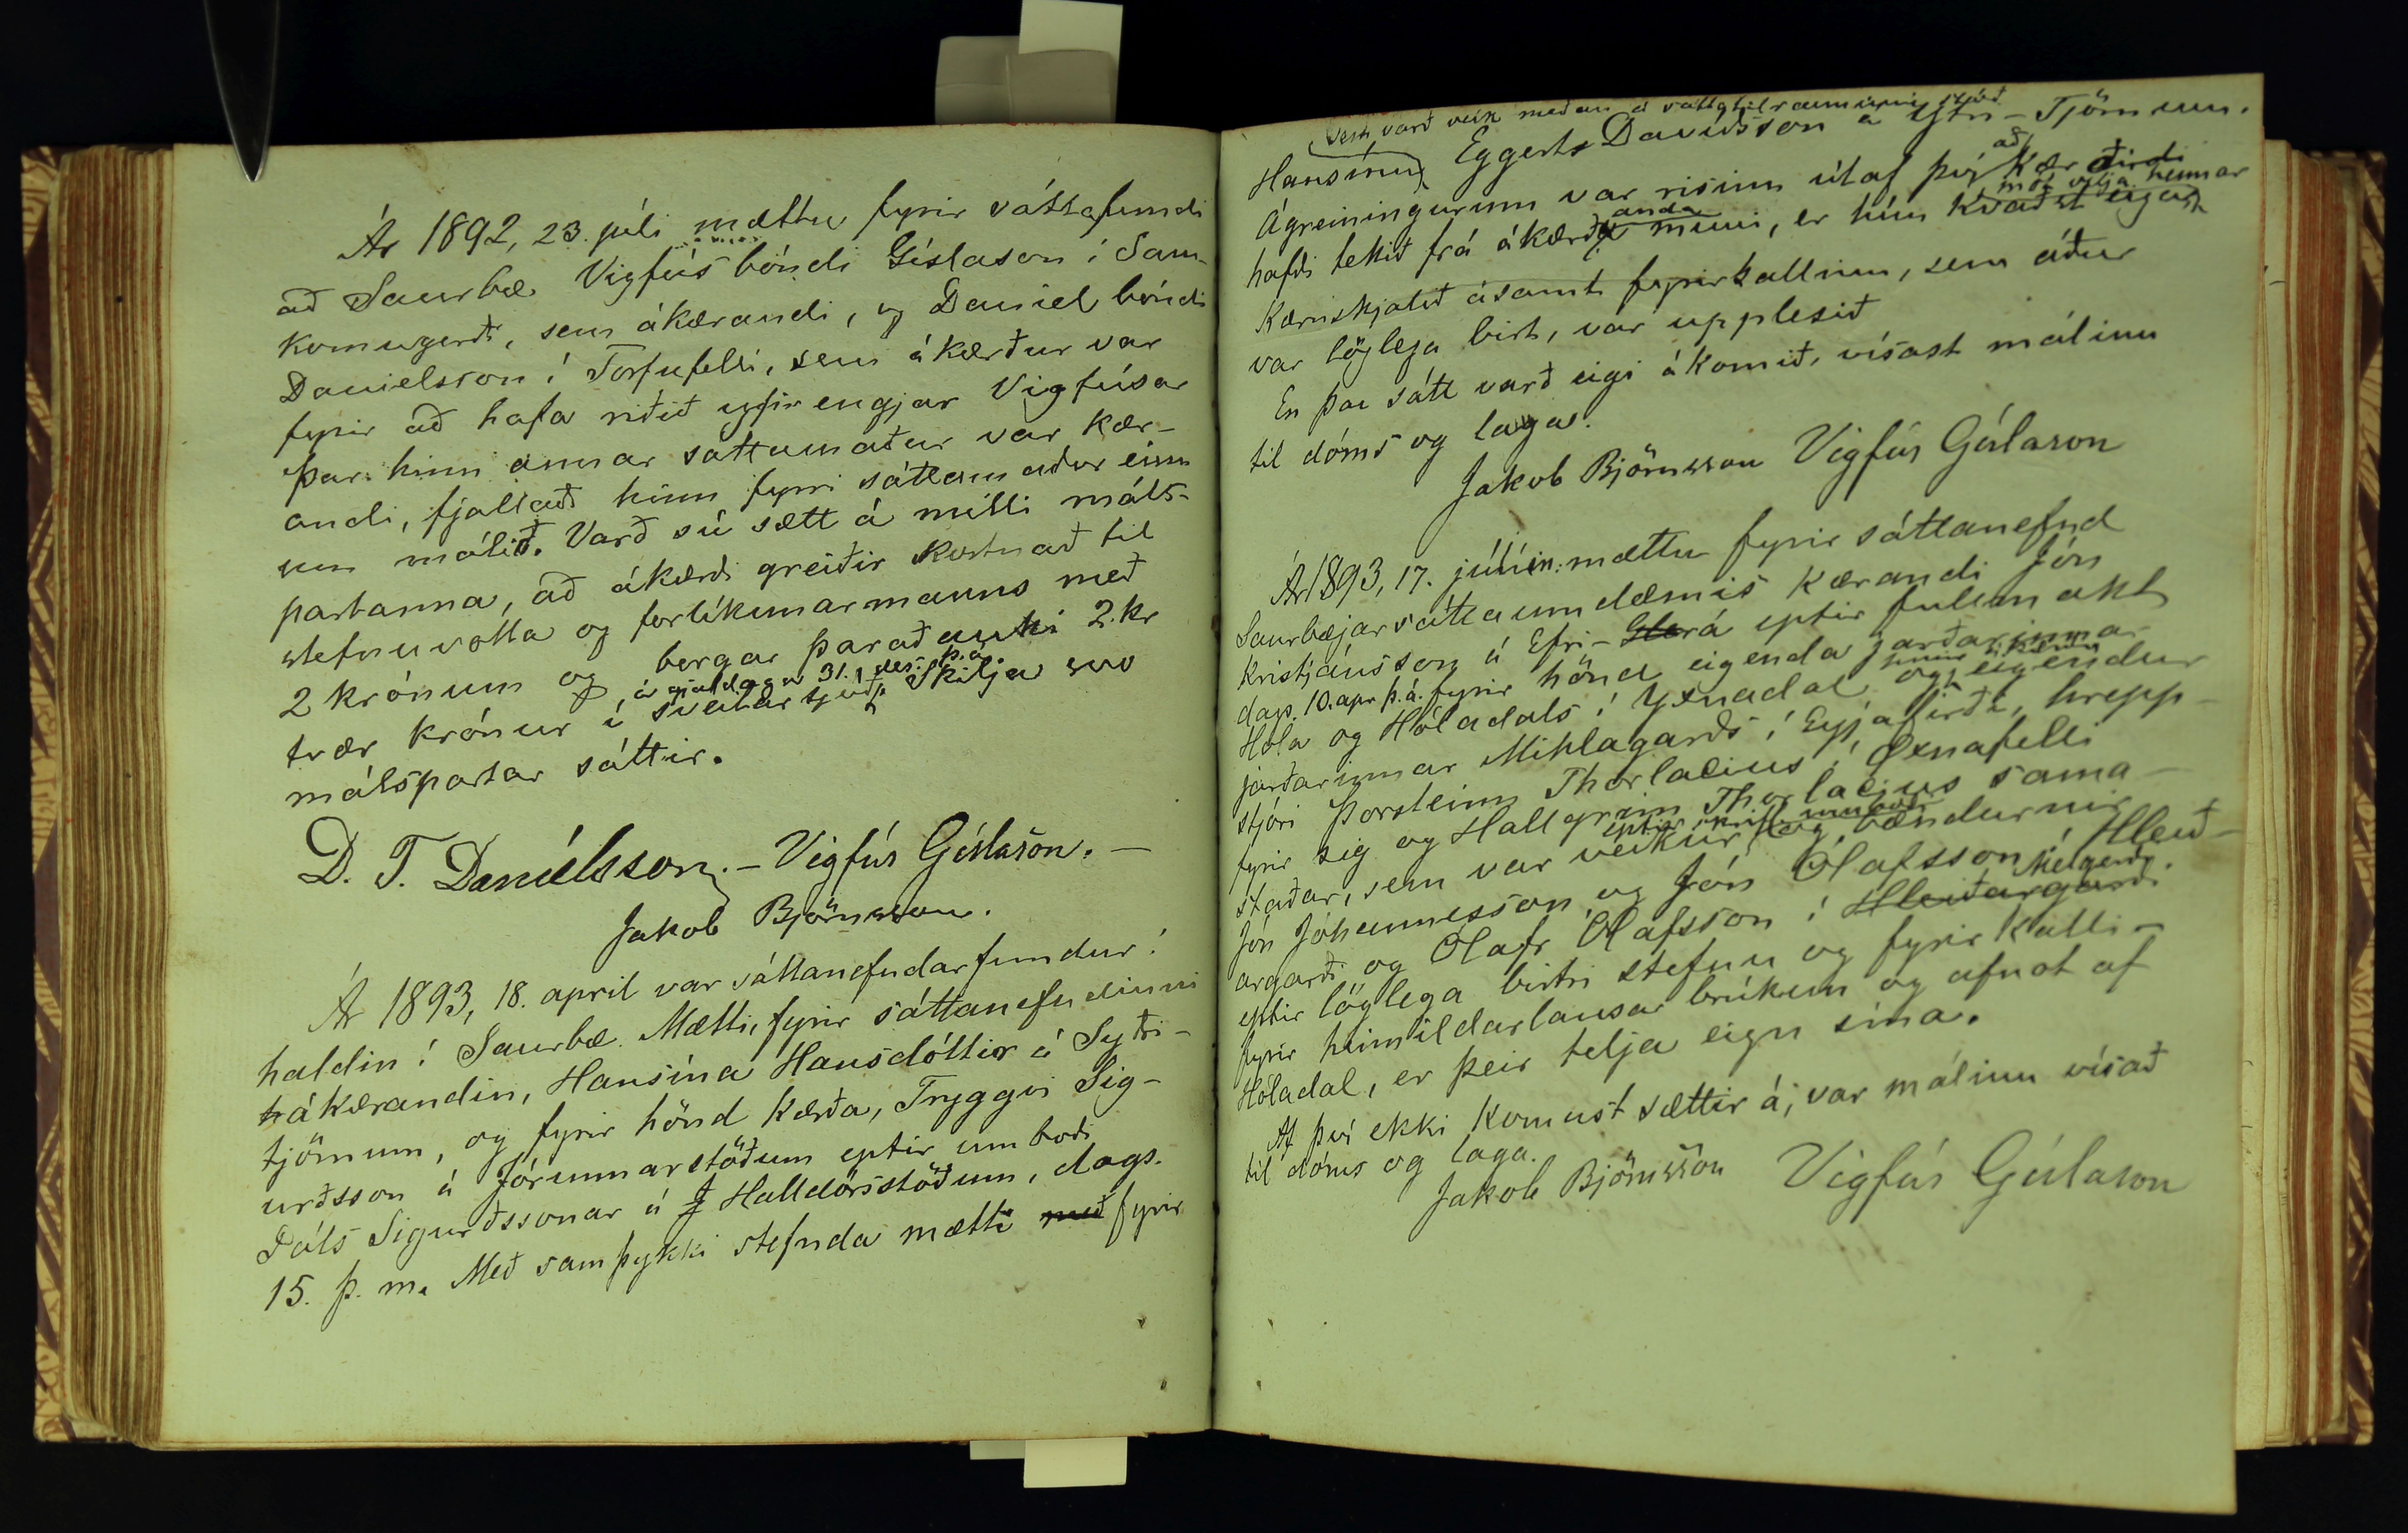 Ár 1892, 23. júli mættu fyrir sáttafundi
að Saurbæ Vigfús bóndi Gíslason í Sam-
komugerði, sem ákærandi, og Daníel bóndi
Daníelsson í Torfufelli, sem ákærður var
fyrir að hafa riðið yfir engjar Vigfúsar
Þar hinn annar sáttamaður var kær-
andi, fjallaði hinn fyrri sáttamaður einn
um málið. Varð sú sætt á milli máls-
partanna, að ákærði greiðir kostnað til
stefnuvotta og forlíkunarmanns með
2 krónum og borgar þarað auki 2. kr
á gjalddaga 31. des. þ.á.
tvær krónur í sveitarsjóð. Skilja svo
málspartar sáttir.
D. T. Daníelsson. – Vigfús Gíslason. –
Jakob Björnsson.
Ár 1893, 18. apríl var sáttanefndarfundur
haldin í Saurbæ. Mætti, fyrir sáttanefndinni
ákærandin, Hansína Hansdóttir á Syðri-
tjörnum, og fyrir hönd kærða, Tryggvi Sig-
urðsson á Jórunnarstöðum eptir umboði
Páls Sigurðssonar á Halldórsstöðum, dags.
15. þ. m. Með samþykki stefnda mætti með fyrir
sem varð veik meðan á sáttatilrauninni stóð
Hansínu, Eggert Davíðsson á Ytri-Tjörnum.
að
Ágreiningurinn var risinn útaf því kærði
mót vilja hennar
hafði tekið frá ákæranda muni, er hún kvaðst eiga
anda
Kæruskjalið ásamt fyrirkallinu, sem áður
var löglega birt, var upplesið
En þar sátt varð eigi ákomið, vísast málinu
til dóms og laga.
Jakob Björnsson Vigfús Gíslason
Ár 1893, 17. júlím. mættu fyrir sáttanefnd
Saurbæjarsáttaumdæmis kærandi Jón
Kristjánsson á Efri-Glerá eptir fullmakt
dags. 10. apr þ.á. fyrir hönd eigenda jarðarinnar
Hóla og Hóladals í Yxnadal og eigendur
jarðarinnar Miklagarðs í Eyjafirði, hrepp-
stjóri Þorsteinn Thorlacius í Öxnafelli
fyrir sig og Hallgrím Thorlacius sama-
staðar, sem var veikur, og bændurnir
Jón Jóhannesson og Jón Ólafsson í Hleið-
Melgerði.
argarði og Ólafr Ólafsson í Hleiðargarði
eptir löglega birtri stefnu og fyrirkalli –
fyrir heimildarlausar brúkun og afnot af
Hóladal, er þeir telja eign sína.
Af því ekki komust sættir á, var málinu vísað
til dóms og laga.
Jakob Björnsson Vigfús Gíslason